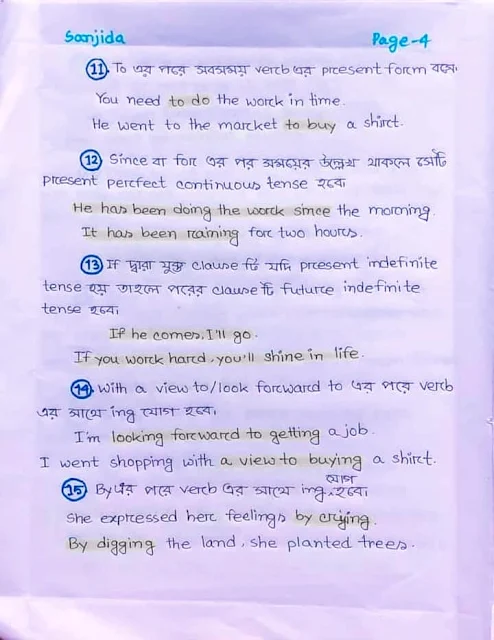 Sanjida
Page-4
11. To এর পরে সবসময় verb এর present form বসে।
You need to do the work in time.
He went to the market to buy a shirt.
12 Since বা for এর পর সময়ের উল্লেখ থাকলে সেটি
present perfect continuous tense হবে।
He has been doing the work since the morning.
It has been raining for two hours.
13 If দ্বারা যুক্ত clause টি যদি present indefinite
tense হয় তাহলে পরের clause টি future indefinite
tense হবে।
If he comes, I'll go.
If you work hard, you'll shine in life.
14. With a view to/look forward to এর পরে verb
এর সাথে ing যোগ হবে।
I'm looking forward to getting a job.
I went shopping with a view to buying a shirt.
15 By এর পরে verb এর সাথে ing যোগ হবে।
She expressed her feelings by crying.
By digging the land, she planted trees.